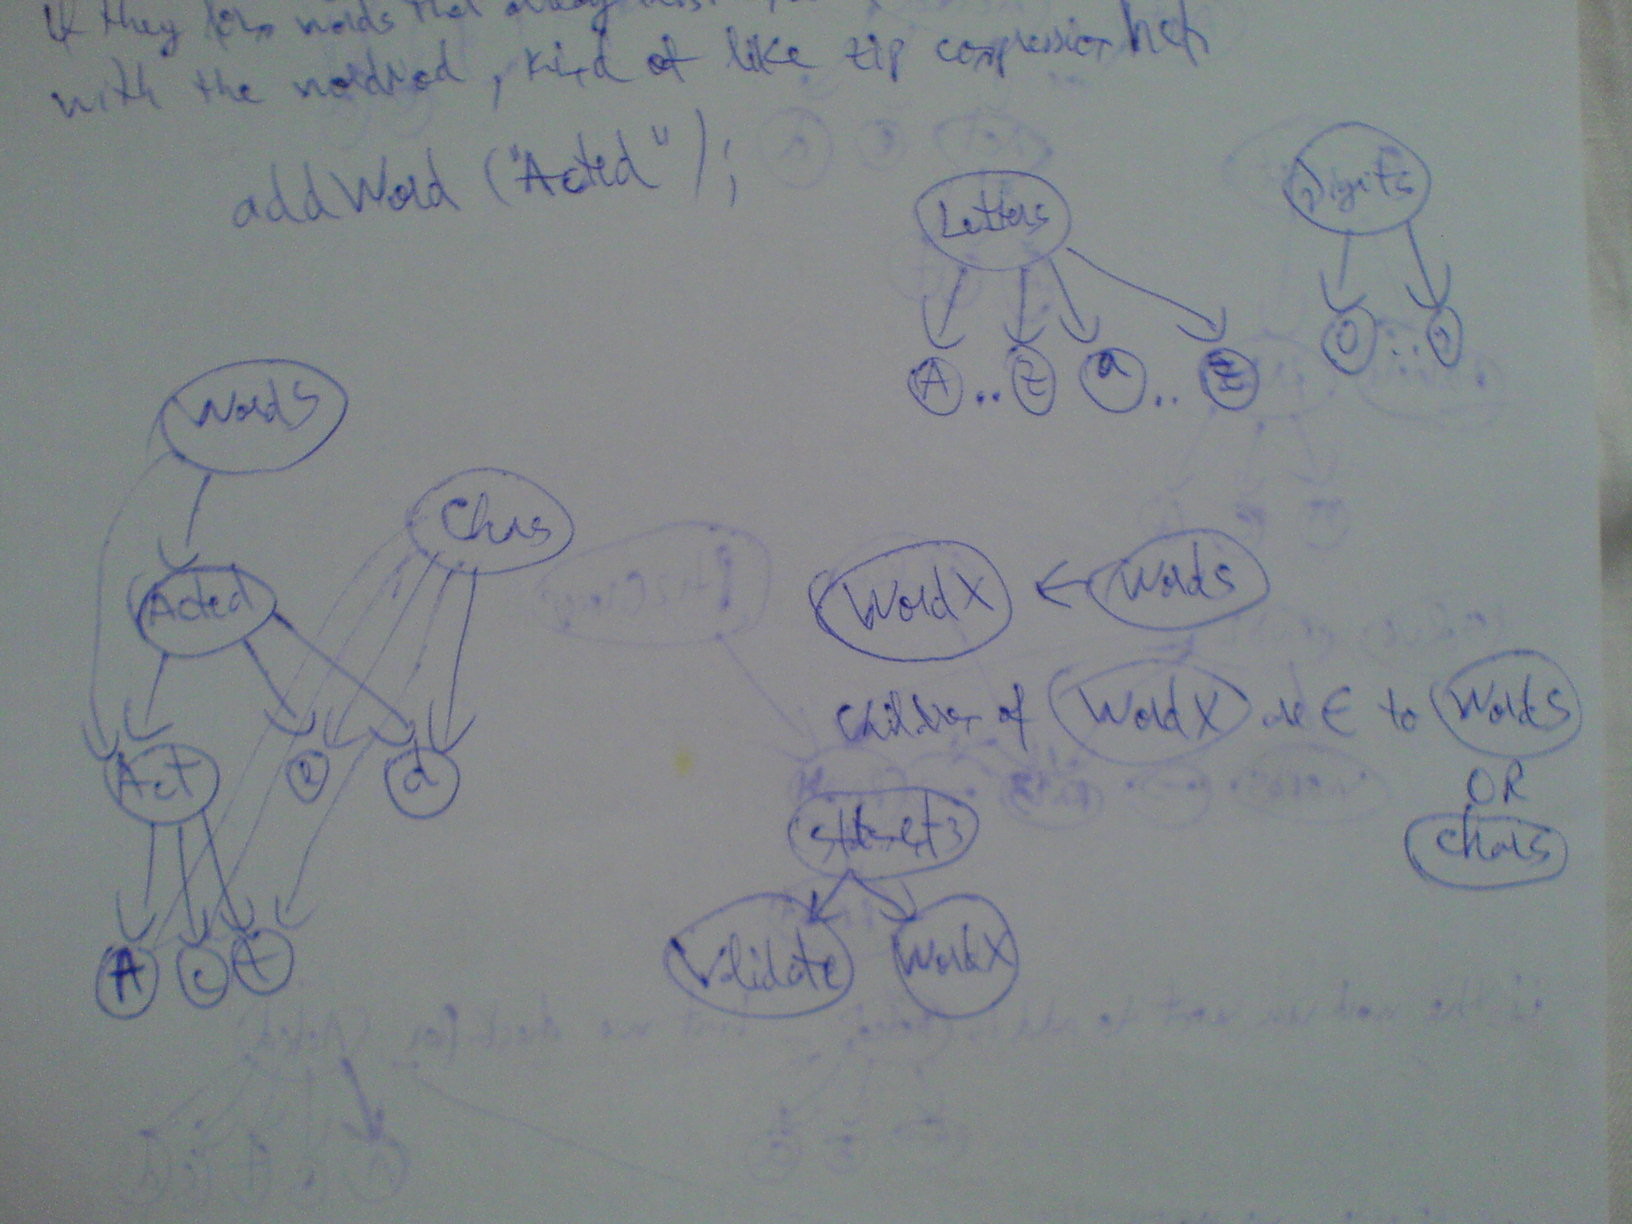 if they form words that already exist
with the wordnod, kind of like zip compression heh
addWord ("Acted");
Letters
Digits
A .. Z a .. z
0 .. 9
Words
Chars
Acted
WordX ← Words
children of WordX are ∈ to Words
OR
Chars
Act e d
A c t
Validate WordX